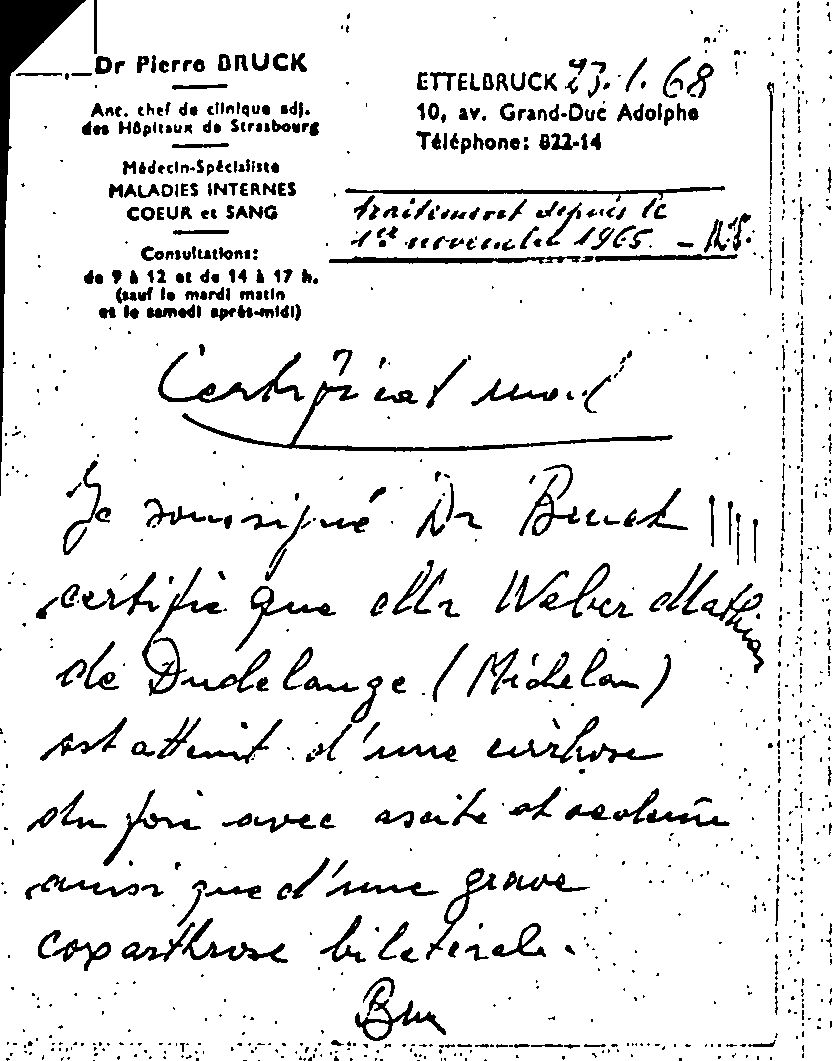 Dr Pierre BRUCK
Anc. chef de clinique adj.
des Hôpitaux de Strasbourg
Médecin-Spécialiste
MALADIES INTERNES
COEUR et SANG
Consultations:
de 9 à 12 et de 14 à 17 h.
(sauf le mardi matin
et le samedi après-midi)
ETTELBRUCK 23.1.68
10, av. Grand-Duc Adolphe
Téléphone: 822-14
traitement depuis le
1er novembre 1965. –
Certificat med
Je soussigné Dr Bruck
certifie que Mr Weber Mathias
de Dudelange (Michelau)
est atteint d'une cirrhose
du foie avec ascite et oedeme
ainsi que d'une grave
coxarthrose bilatérale.